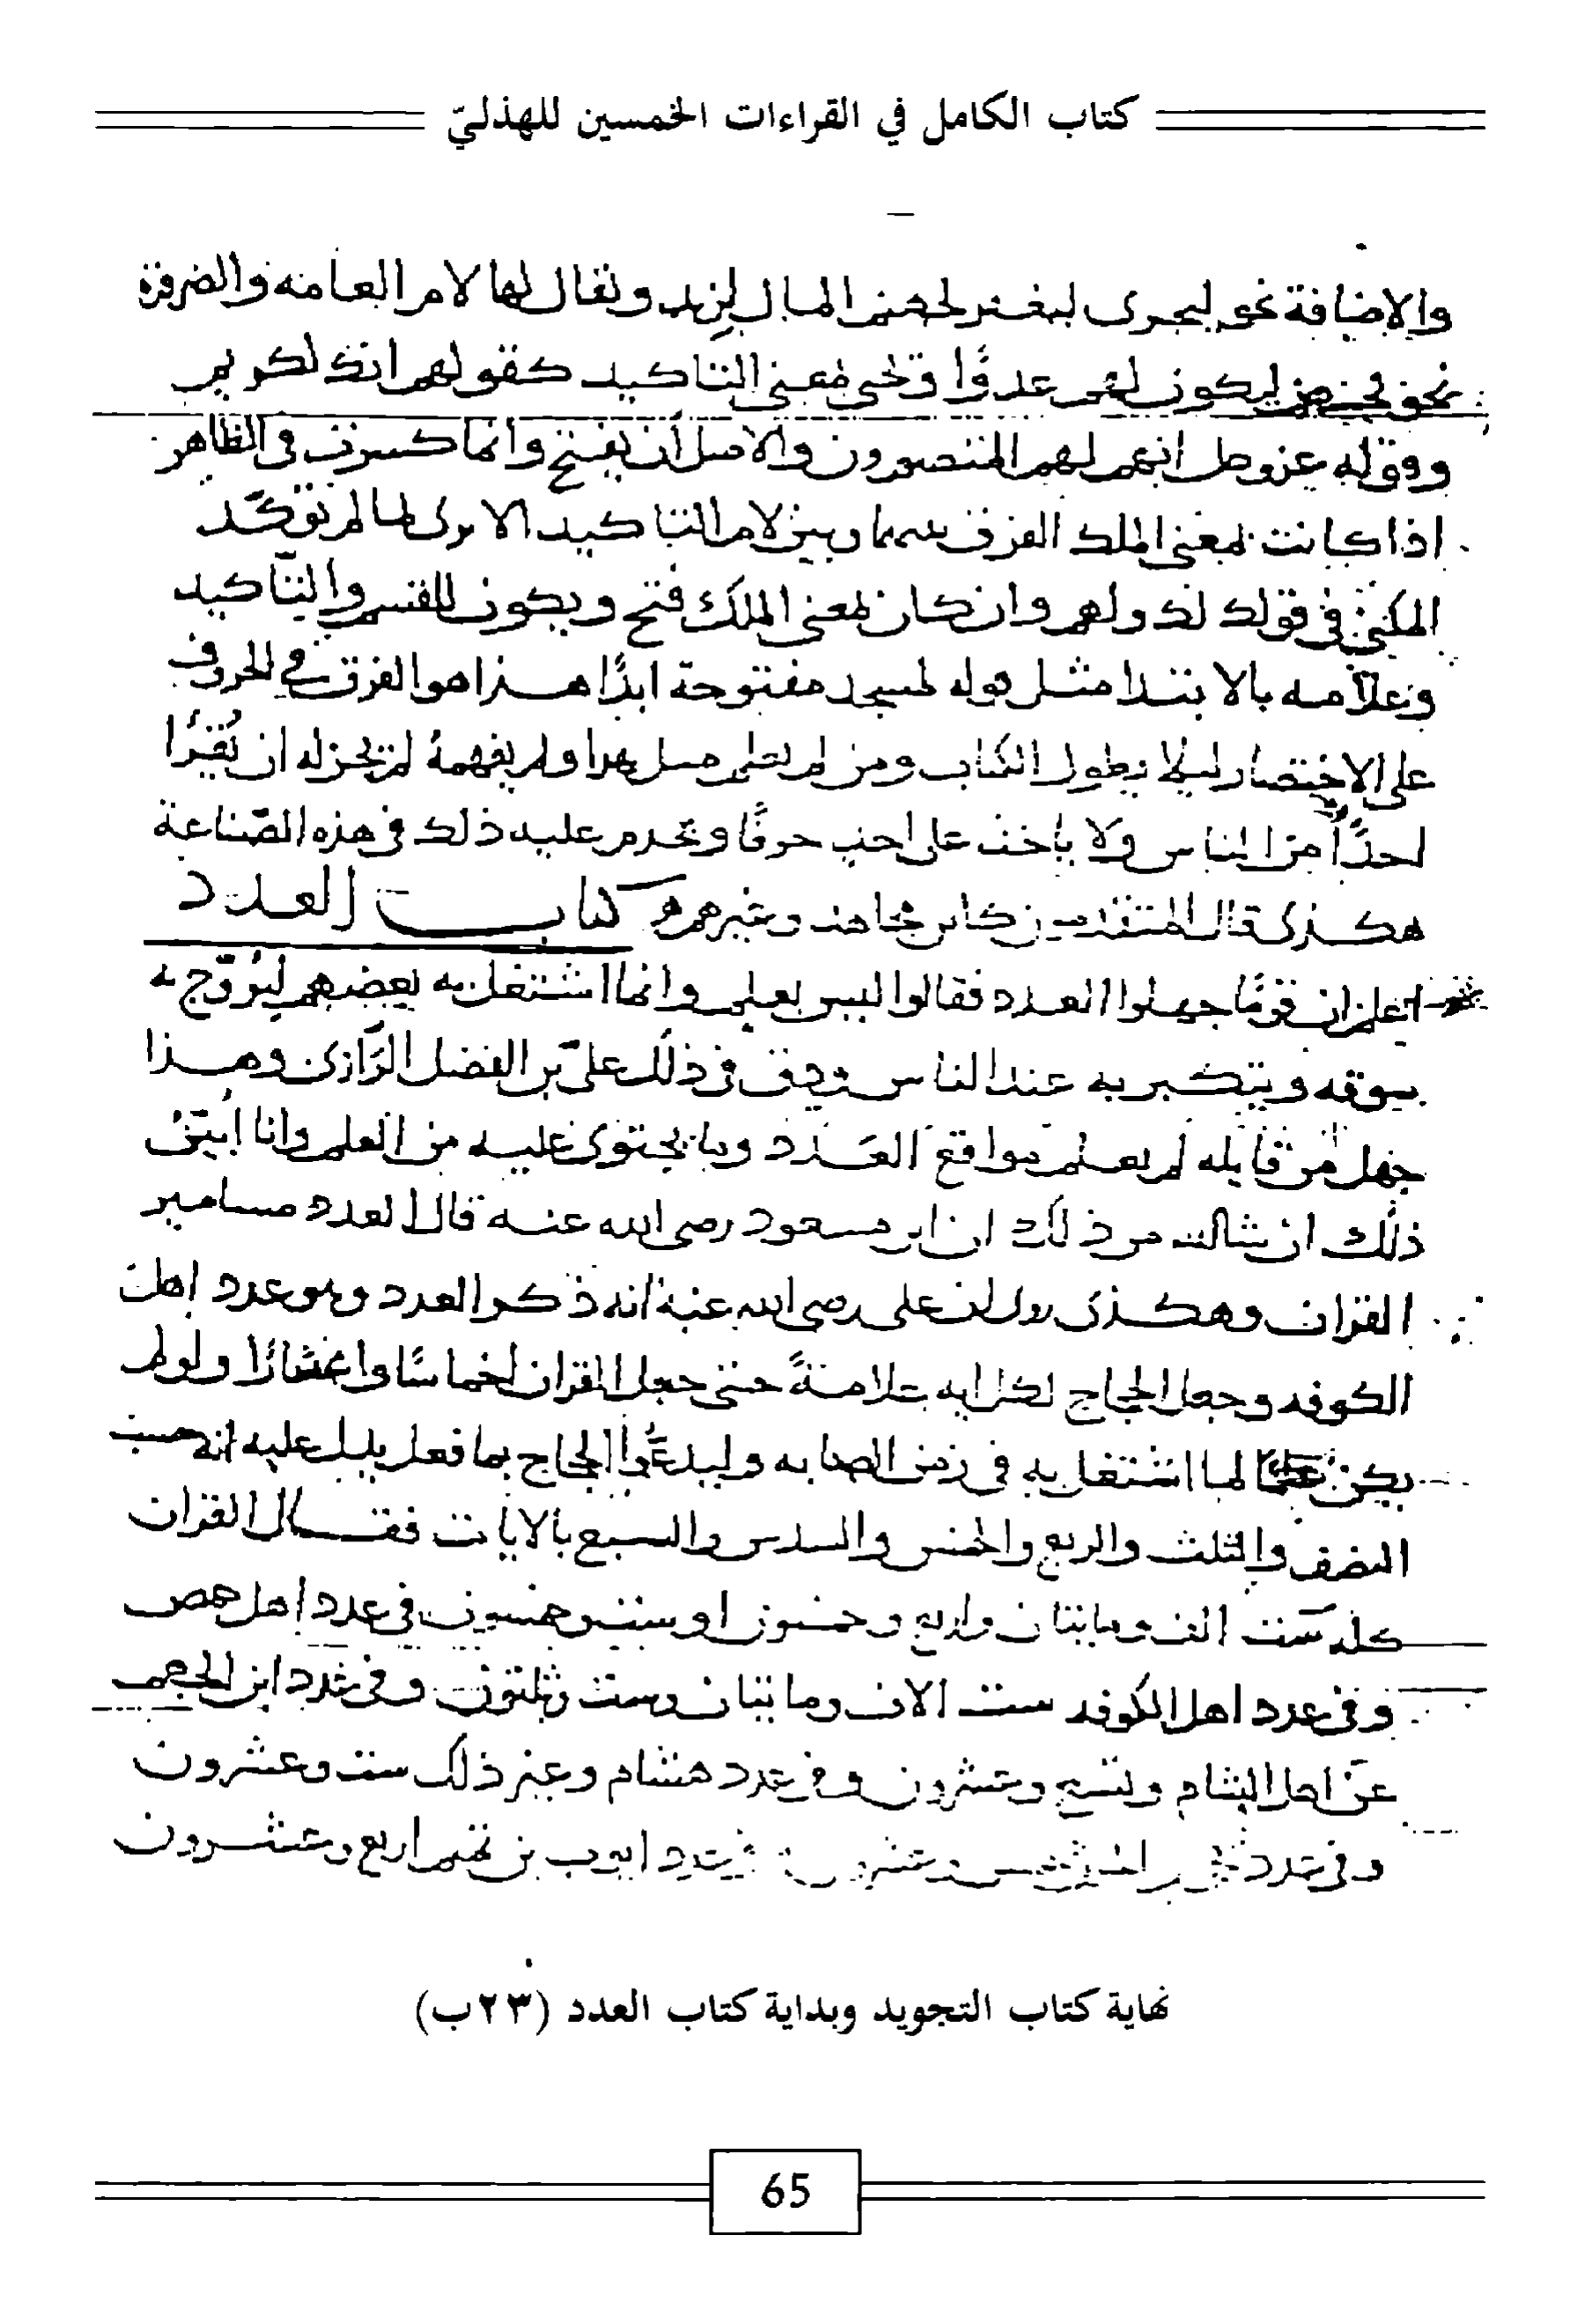 كتاب الكامل في القراءات الخمسين للهذليّ
والاضافة نحو ليجرى ليغفر لحضنى المال لزيد ويقال لها لام العامه والضرورة
نحو ليكون لهم عدوًّا وتجى بمعنى التاكيد كقولهم انك لكريم
وقوله عزوجل انهم لهم المنصورون والاصل ان يفتح وانما كسرت فى الظاهر
اذا كانت بمعنى الملك الفرق بينها وبين لام التاكيد الا برى لما لم توكّد
المكنى فى قولك لك ولهم وان كان بمعنى الملك فتح ويكون للقسم والتاكيد
وعلامه بالابتدا مثل قوله لمسجد مفتوحة ابدًا هذا هو الفرق فى الحروف
على الاختصار ليلا يطول الكتاب ومن لم يعلم مثل هذا ولم يفهمهُ لم يجز له ان يُقرا
احدًا من الناس ولا ياخذ على احد حرفًا ويحرم عليه ذلك فى هذه الصّناعة
هكذى قال المتقدمون كابن مجاهد وغيرهم كتاب العدد
اعلم ان قومًا جهلوا العدد فقالوا ليس بعلم وانما اشتغل به بعضهم ليروّج به
سوقه ويتكبر به عند الناس فى ذلك على بن الفضل الرازى وهذا
جهل من قايله لم يعلم مواقع العدد وما يحتوى عليه من العلم وانا ابين
ذلك ان شا الله من ذلك ان ابن مسعود رضى الله عنه قال العدد مسامير
القران وهكذى روى ان على رضى الله عنه انه ذكر العدد وهو عدد اهل
الكوفه وجعل الحجاج لكل ايه علامةً حتى جعل القران اخماسًا واعشارًا ولو لم
يكن علمًا لما اشتغل به فى زمن الصحابه ولبدعوا الحجاج بما فعل يدل عليه انه حسب
النصف والثلث والربع والخمس والسدس والسبع بالايات فقال القران
كله ست الف ومايتان واربع وخمسون او ست وخمسون فى عدد اهل حمص
وفى عدد اهل الكوفه ست الاف ومايتان وست وثلثون وفى عدد ابن الجهم
عن اهل الشام وتسع وعشرون وفى عدد هشام وغير ذلك ست وعشرون
وفى عدد وعشرون ايوب بن تميم اربع وعشرون
نهاية كتاب التجويد وبداية كتاب العدد (٢٣ب)
65